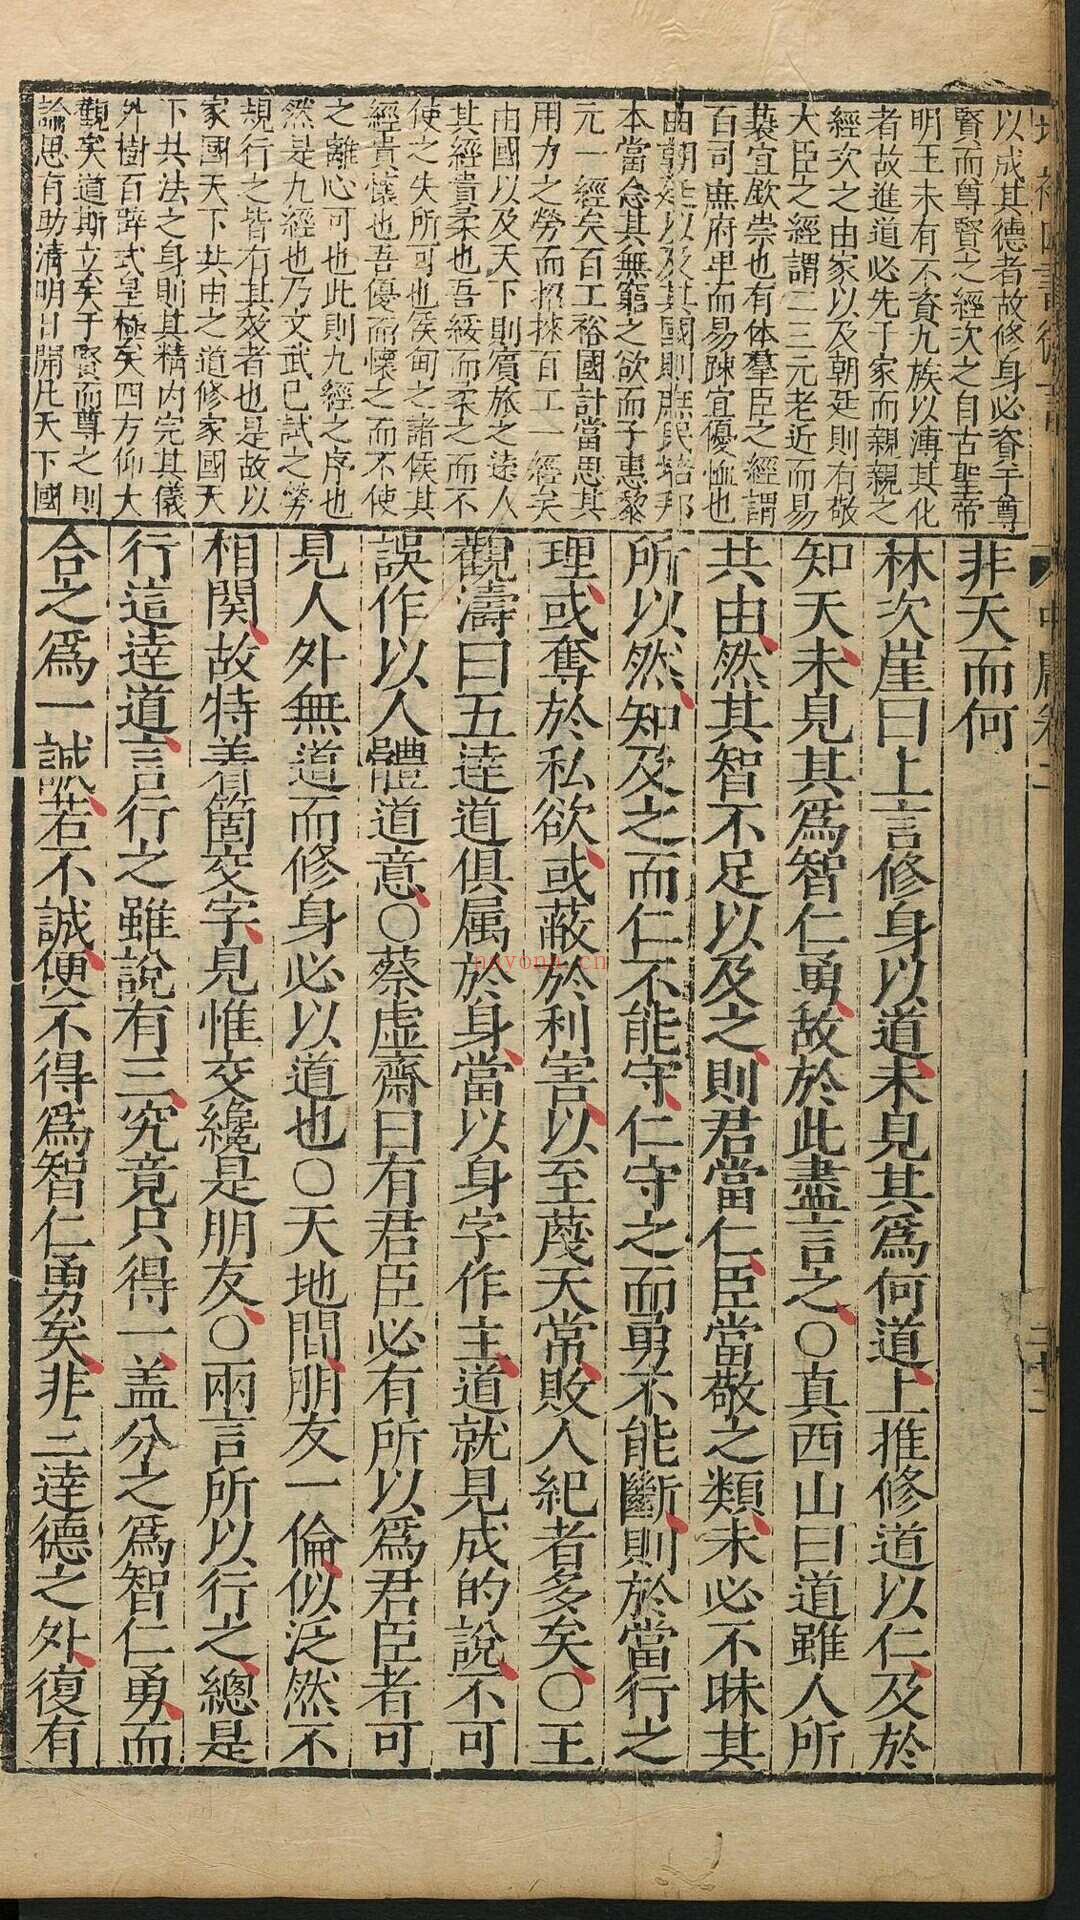 以成其德者故修身必資于尊
賢而尊賢之經次之自古聖帝
明王未有不資九族以溥其化
者故進道必先于家而親親之
經次之由家以及朝廷則有敬
大臣之經謂二三元老近而易
䙝宜欽崇也有体羣臣之經謂
百司庶府卑而易踈宜優恤也
由朝廷以及其國則庶民培邦
本當念其無窮之欲而子惠黎
元一經矣百工裕國計當思其
用力之勞而招徠百工一經矣
由國以及天下則賓旅之逺人
其經貴柔也吾綏而柔之而不
使之失所可也侯甸之諸侯其
經貴懷也吾優而懷之而不使
之離心可也此則九經之序也
然是九經也乃文武已試之勞
規行之皆有其效者也是故以
家國天下共由之道修家國天
下共法之身則其精内完其儀
外樹百辟式皇極矣四方仰大
觀矣道斯立矣于賢而尊之則
論思有助清明日開凡天下國
非天而何
林次崖曰上言修身以道未見其爲何道上推修道以仁及於
知天未見其爲智仁勇故於此盡言之○真西山曰道雖人所
共由然其智不足以及之則君當仁臣當敬之類未必不昧其
所以然知及之而仁不能守仁守之而勇不能斷則於當行之
理或奪於私欲或蔽於利害以至蔑天常敗人紀者多矣○王
觀濤曰五逹道俱属於身當以身字作主道就見成的說不可
誤作以人體道意○蔡虚齋曰有君臣必有所以爲君臣者可
見人外無道而修身必以道也○天地間朋友一倫似泛然不
相関故特着箇交字見惟交纔是朋友○兩言所以行之總是
行這逹道言行之雖說有三究竟只得一盖分之爲智仁勇而
合之爲一誠若不誠便不得爲智仁勇矣非三逹德之外復有
中庸卷二
nayona.cn